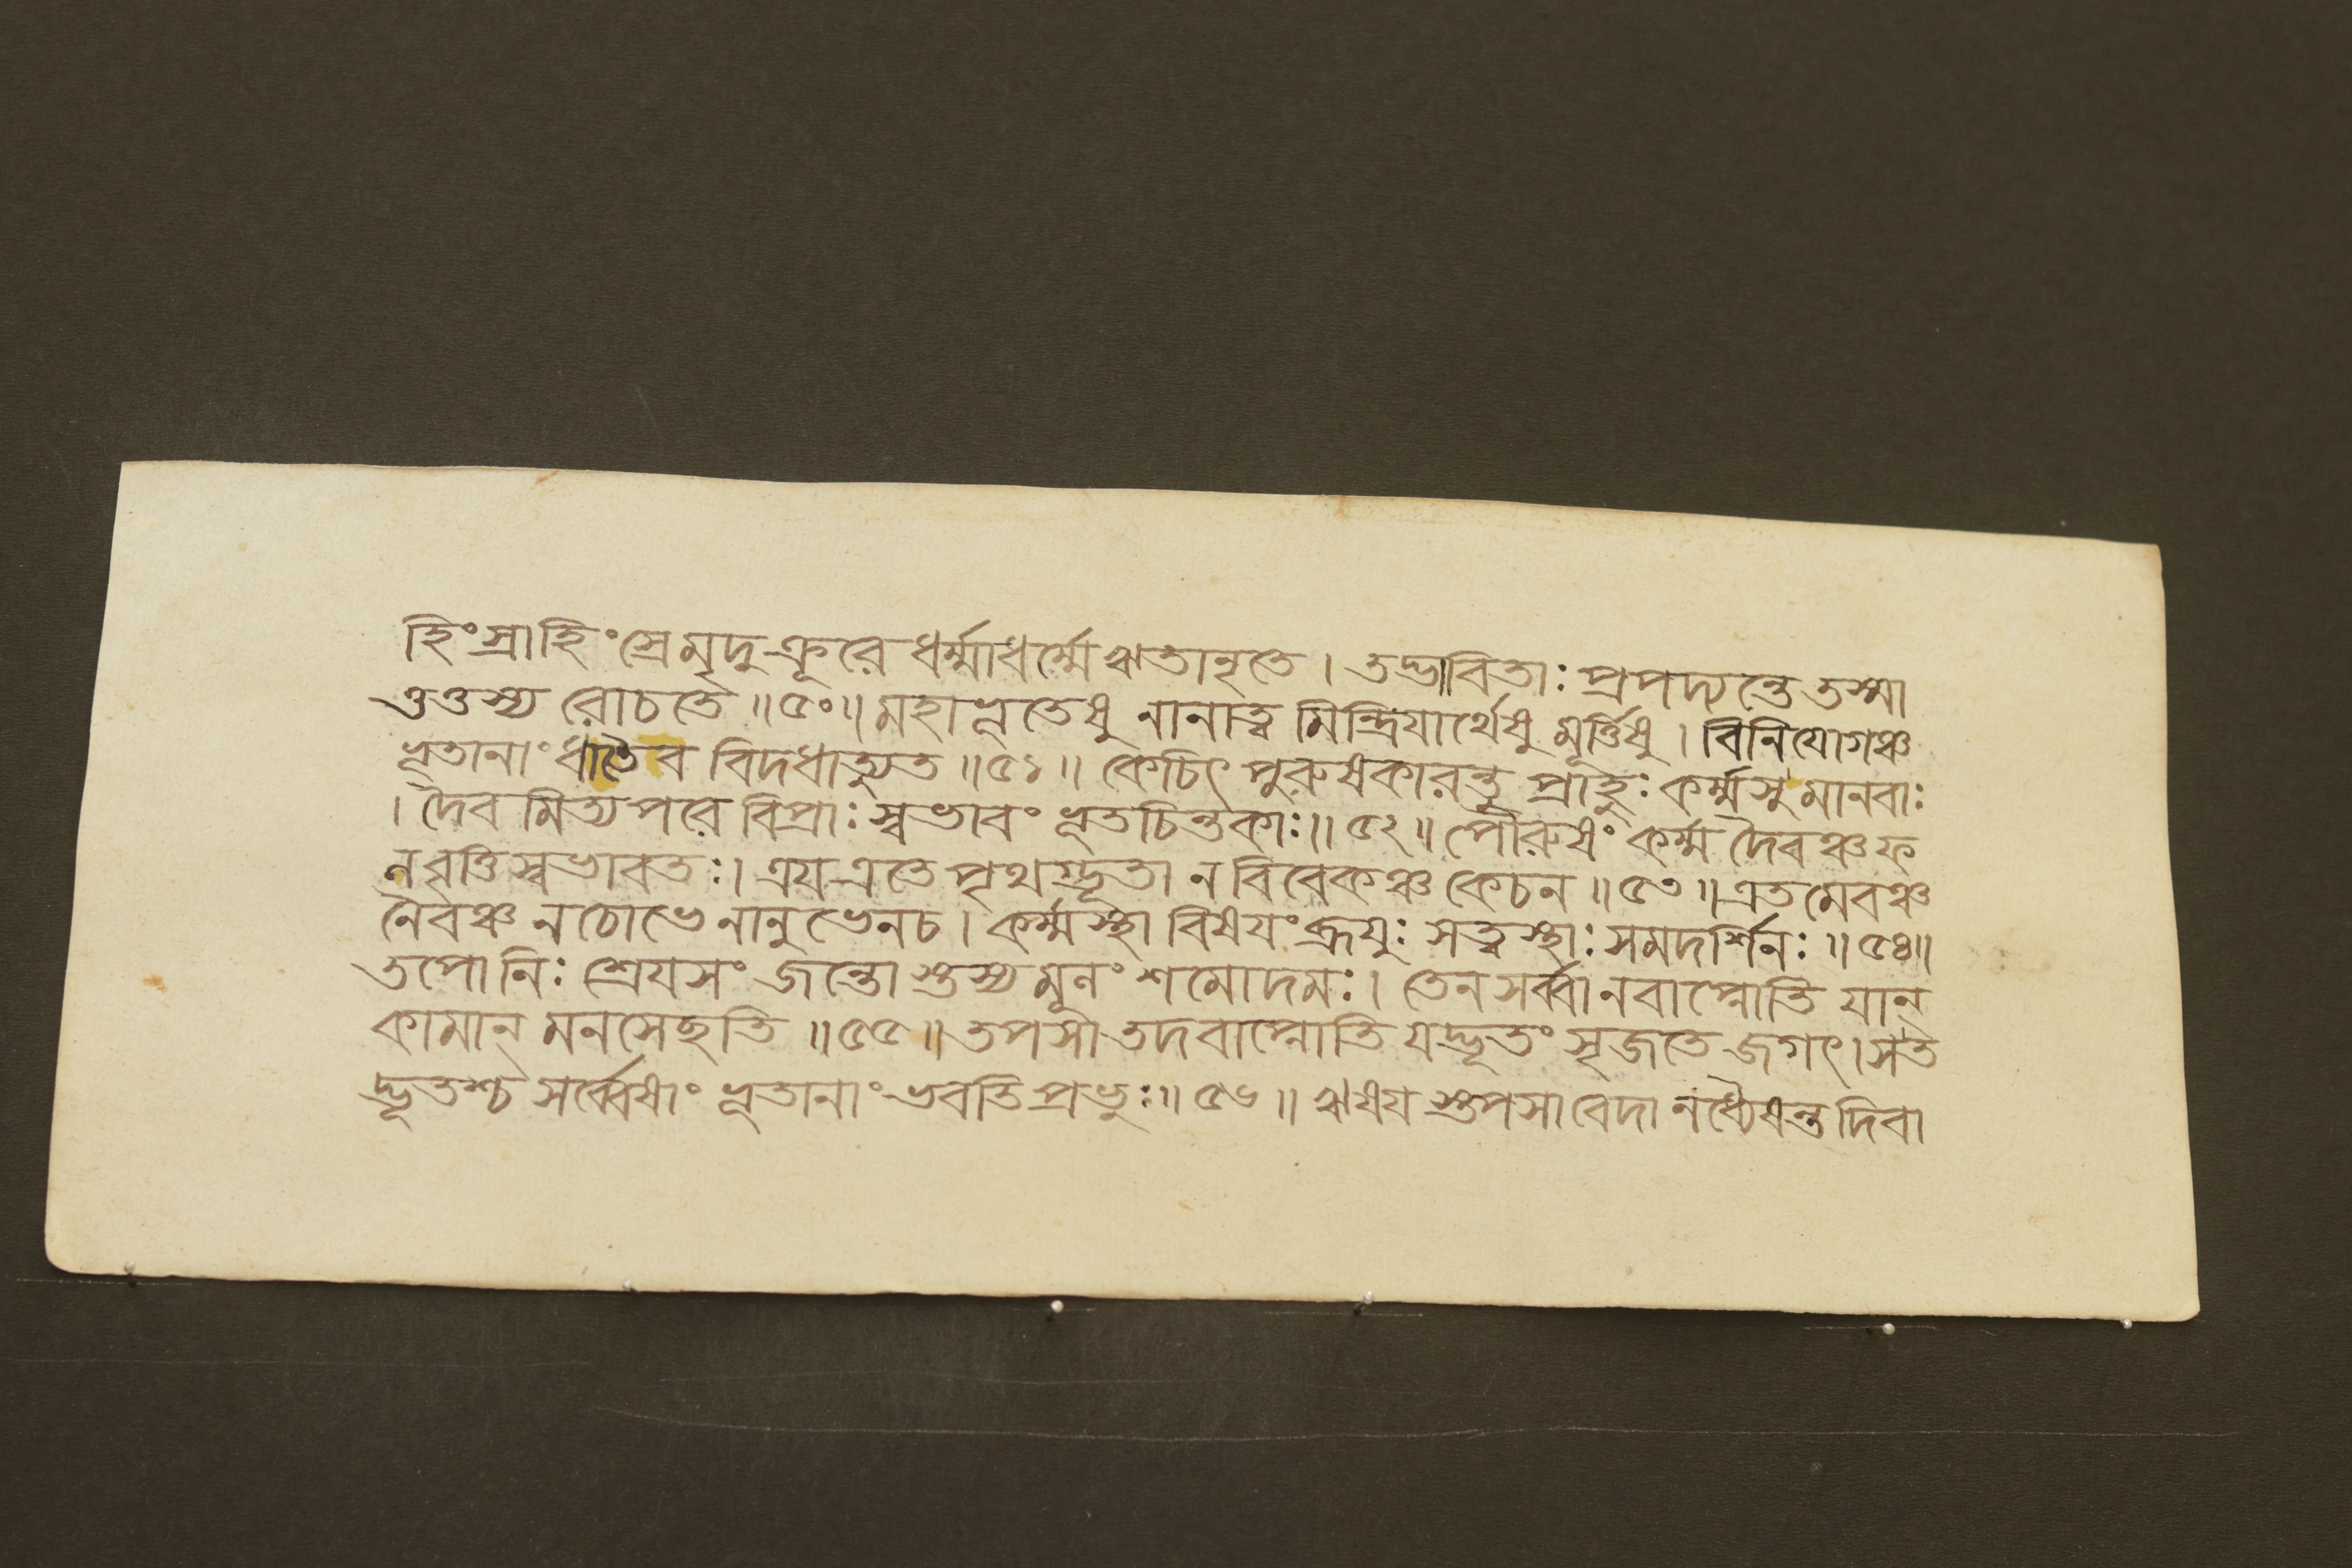 হিংস্রাহিংস্রেমৃদুক্রূরে ধর্ম্মাধর্ম্মেঋতানৃতে । তদ্ভাবিতাঃ প্রপদ্যন্তে তস্মা
ত্তত্তস্য রোচতে ॥৫০॥ মহাভূতেষু নানাত্ব মিন্দ্রিযার্থেষু মূর্ত্তিষু । বিনিযোগঞ্চ
ভূতানাং ধাতৈব বিদধাত্যুত ॥৫১॥ কেচিৎ পুরুষকারন্তু প্রাহুঃ কর্ম্মসু মানবাঃ
। দৈব মিত্যপরে বিপ্রাঃ স্বভাবং ভূতচিন্তকাঃ॥ ৫২॥ পৌরুষং কর্ম্ম দৈবঞ্চফ
লবৃত্তিস্বভাবতঃ। ত্রয এতে পৃথগ্ভূতা ন বিবেকঞ্চ কেচন ॥৫৩॥ এতমেবঞ্চ
নৈবঞ্চ নঠোভে নানুভেনচ । কর্ম্মস্থা বিষযংব্রূযুঃ সত্ত্বস্থাঃ সমদর্শিনঃ ॥৫৪॥
তপো নিঃশ্রেযসং জন্তো স্তস্য মূলং শমোদমঃ। তেন সর্ব্বানবাপ্নোতি যান্
কামান্ মনসেছতি ॥৫৫॥ তপসা তদবাপ্নোতি যদ্ভূতং সৃজতে জগৎ। সত
দ্ভূতশ্চ সর্ব্বেষাং ভূতানাং ভবতি প্রভুঃ॥ ৫৬॥ ঋষয স্তপসা বেদানধ্যৈষন্ত দিবা